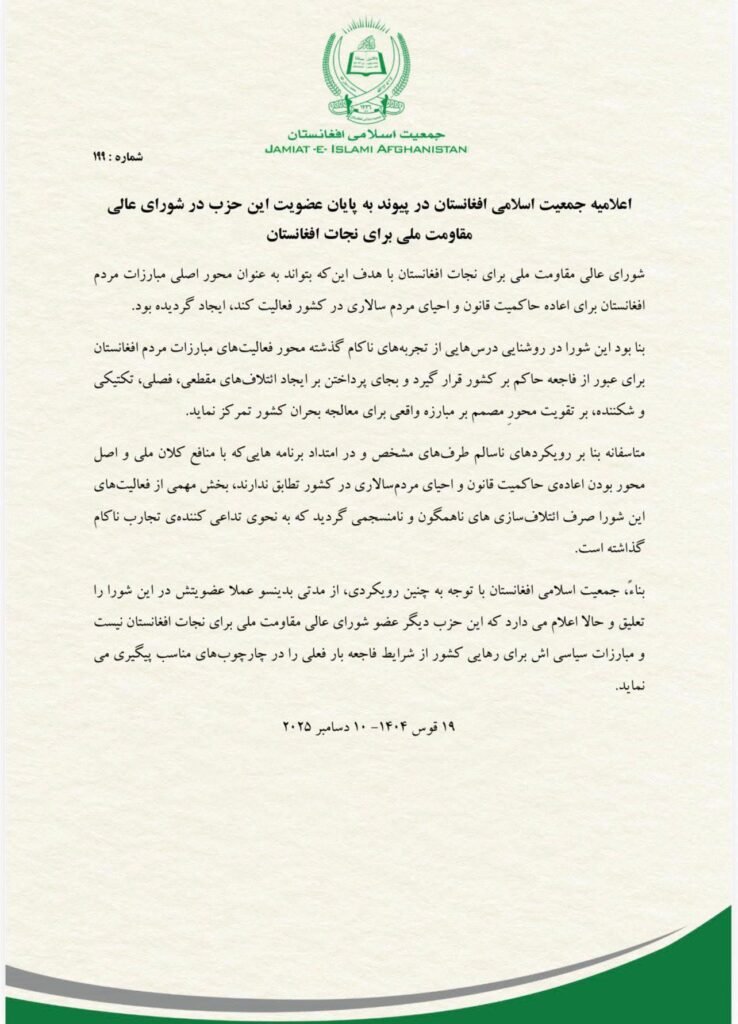 جمعیت اسلامی افغانستان
JAMIAT -E- ISLAMI AFGHANISTAN
شماره : ۱۹۹
اعلامیه جمعیت اسلامی افغانستان در پیوند به پایان عضویت این حزب در شورای عالی
مقاومت ملی برای نجات افغانستان
شورای عالی مقاومت ملی برای نجات افغانستان با هدف این‌که بتواند به عنوان محور اصلی مبارزات مردم
افغانستان برای اعاده حاکمیت قانون و احیای مردم سالاری در کشور فعالیت کند، ایجاد گردیده بود.
بنا بود این شورا در روشنایی درس‌هایی از تجربه‌های ناکام گذشته محور فعالیت‌های مبارزات مردم افغانستان
برای عبور از فاجعه حاکم بر کشور قرار گیرد و بجای پرداختن بر ایجاد ائتلاف‌های مقطعی، فصلی، تکتیکی
و شکننده، بر تقویت محورِ مصمم بر مبارزه واقعی برای معالجه بحران کشور تمرکز نماید.
متاسفانه بنا بر رویکردهای ناسالم طرف‌های مشخص و در امتداد برنامه هایی‌که با منافع کلان ملی و اصل
محور بودن اعاده‌ی حاکمیت قانون و احیای مردم‌سالاری در کشور تطابق ندارند، بخش مهمی از فعالیت‌های
این شورا صرف ائتلاف‌سازی های ناهمگون و نامنسجمی گردید که به نحوی تداعی کننده‌ی تجارب ناکام
گذاشته است.
بناءً، جمعیت اسلامی افغانستان با توجه به چنین رویکردی، از مدتی بدینسو عملا عضویتش در این شورا را
تعلیق و حالا اعلام می دارد که این حزب دیگر عضو شورای عالی مقاومت ملی برای نجات افغانستان نیست
و مبارزات سیاسی اش برای رهایی کشور از شرایط فاجعه بار فعلی را در چارچوب‌های مناسب پیگیری می
نماید.
۱۹ قوس ۱۴۰۴- ۱۰ دسامبر ۲۰۲۵